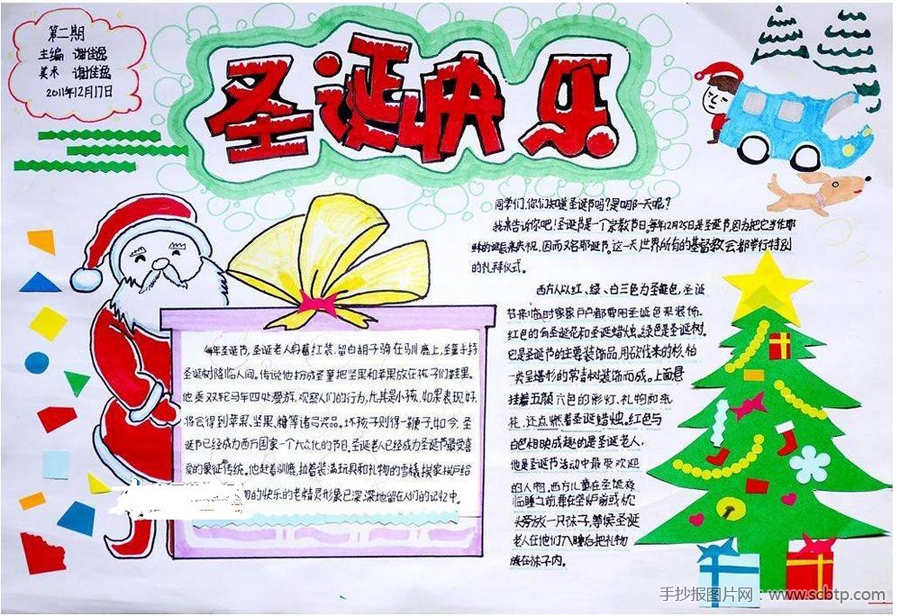 第二期
主编 谢佳逸
美术 谢佳逸
2011年12月17日
圣诞快乐
同学们,你们知道圣诞吗?是哪一天呢?
我来告诉你吧!圣诞是一个宗教节日每年12月25日是圣诞,因为把它当作耶
稣的诞辰来庆祝,因而又名耶诞节。这一天,世界所有的基督教会都举行特别
的礼拜仪式。
西方人以红、绿、白三色为圣诞色,圣诞
节来临时家家户户都要用圣诞色来装饰,
红色的有圣诞花和圣诞蜡烛。绿色是圣诞树。
它是圣诞节的主要装饰品,用砍伐来的杉、柏
一类呈塔形的常青树装饰而成。上面悬
挂着五颜六色的彩灯、礼物和纸
花,还点燃着圣诞蜡烛。红色与
白色相映成趣的是圣诞老人,
他是圣诞节活动中最受欢迎
的人物,西方儿童在圣诞夜
临睡之前,要在壁炉前或枕
头旁放一只袜子,等候圣诞
老人在他们入睡后把礼物
放在袜子内。
每年圣诞节,圣诞老人身着红装、留白胡子骑在驯鹿上,圣童手持
圣诞树降临人间。传说他扮成圣童把坚果和苹果放在孩子们鞋里。
他乘双轮马车四处漫游,观察人们的行为,尤其是小孩,如果表现好,
将会得到苹果、坚果、糖等诸多奖品。坏孩子则得一鞭子。如今,圣
诞节已经成为西方国家一个大众化的节日,圣诞老人已经成为圣诞节最受喜
爱的象征,传统。他赶着驯鹿,拉着装满玩具和礼物的雪橇挨家挨户给
的快乐的老精灵形象已深深地留在人们的记忆中。
手抄报图片网:www.scbtp.com